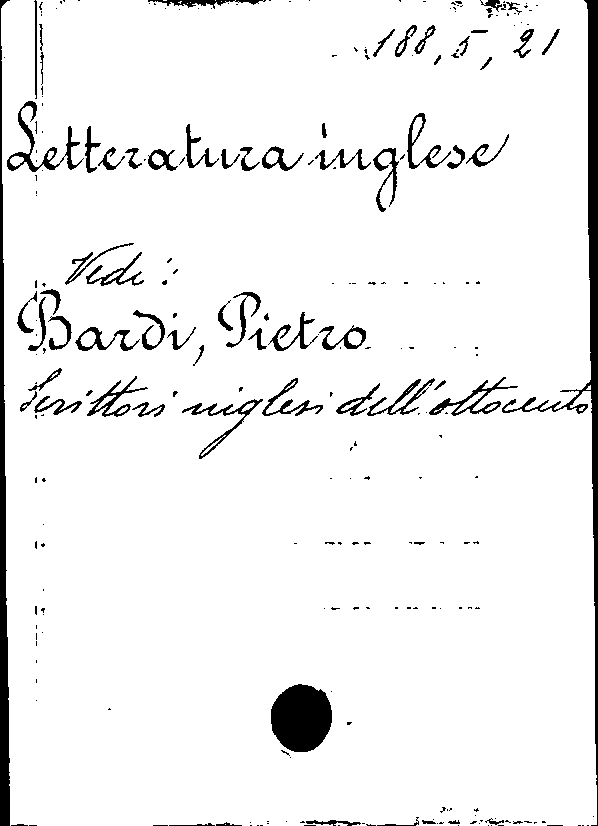 188, 5, 21
Letteratura inglese
Vedi:
Bardi, Pietro
Scrittori inglesi dell'ottocento